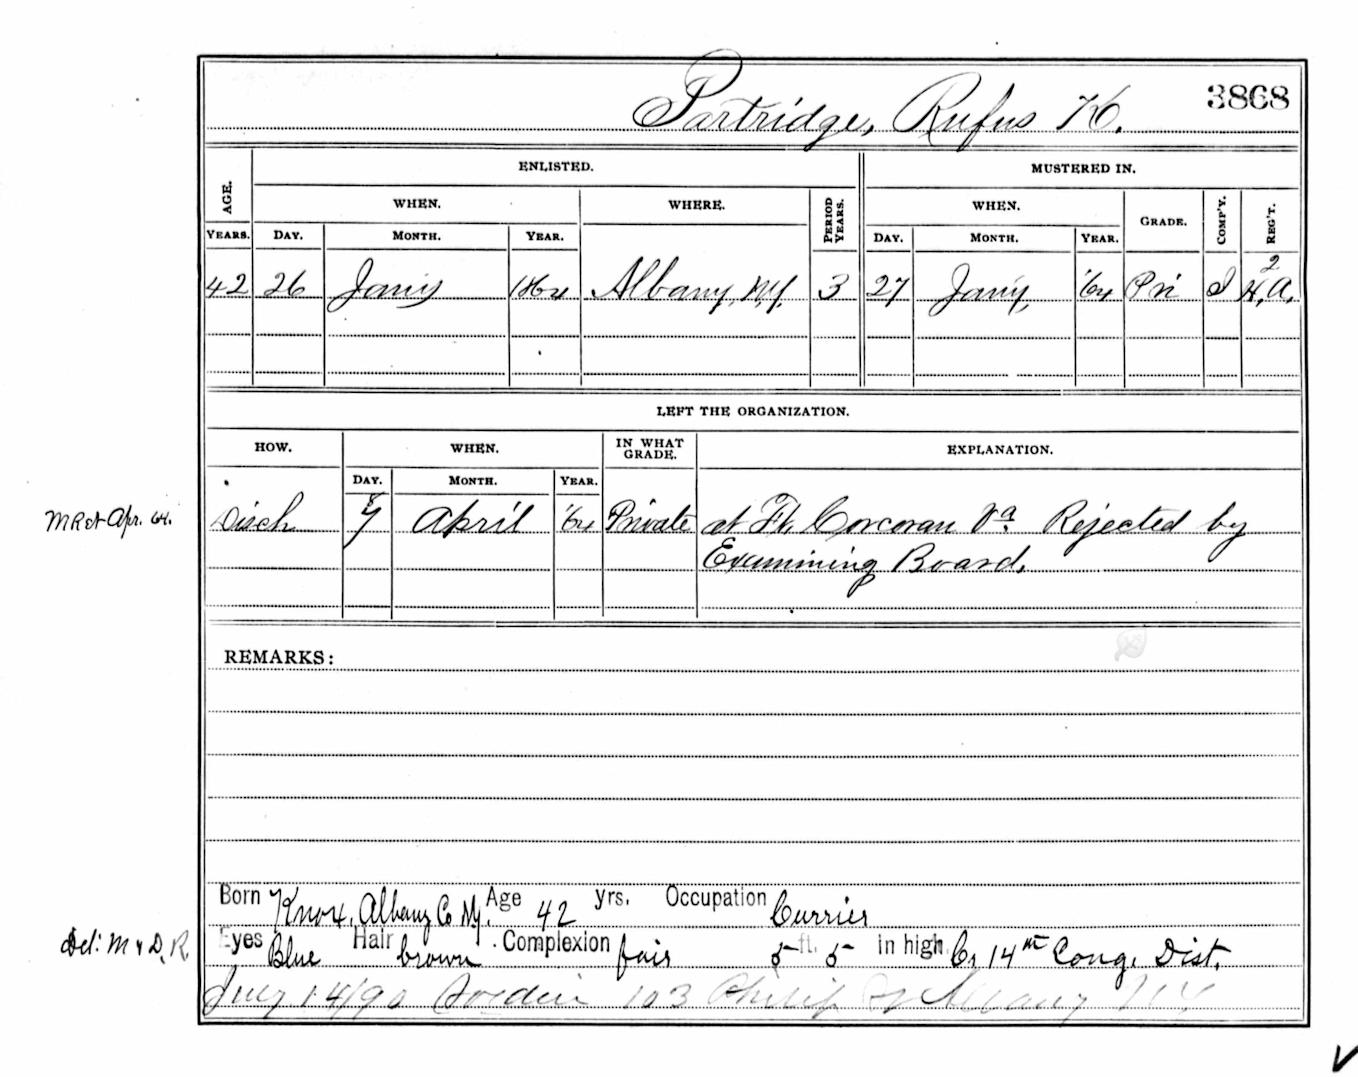 Partridge, Rufus H. 3868
ENLISTED. MUSTERED IN.
AGE. WHEN. WHERE. PERIOD YEARS. WHEN. GRADE. COMP'Y. REG'T.
YEARS. DAY. MONTH. YEAR. DAY. MONTH. YEAR.
42 26 Jany 1864 Albany, N.Y. 3 27 Jany, '64 Pri I 2 H.A.
LEFT THE ORGANIZATION.
HOW. WHEN. IN WHAT GRADE. EXPLANATION.
DAY. MONTH. YEAR.
Apr. 64. Disch April '64 Private at Ft. Corcoran Va Rejected by
Examining Board.
REMARKS:
Born Knox, Albany Co N.Y. Age 42 yrs. Occupation Currier
Del: M & D, R. Eyes Blue Hair brown Complexion fair 5 ft. 5 in high. Cr 14th Cong. Dist.
14/90 103 Philip Albany N.Y.